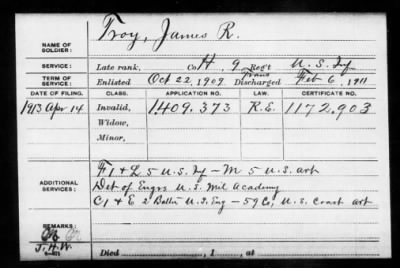 Troy, James R.
NAME OF SOLDIER:
SERVICE: Late rank, Co H, 9 Reg't U.S. Inf
TERM OF SERVICE: Enlisted Oct 22, 1909 Trans Discharged Feb 6, 1911
DATE OF FILING. CLASS. APPLICATION NO. LAW. CERTIFICATE NO.
1913 Apr 14 Invalid, 1.409.373 R.E. 1172.903
Widow,
Minor,
F 1 & L 5 U.S. Inf - M 5 U.S. art
ADDITIONAL SERVICES: Det of Engrs U.S. Mil Academy
C 1 & E 2 Battn U.S. Eng - 59 Co, U.S. Coast art
REMARKS:
J.H.W.
Died , 1 , at